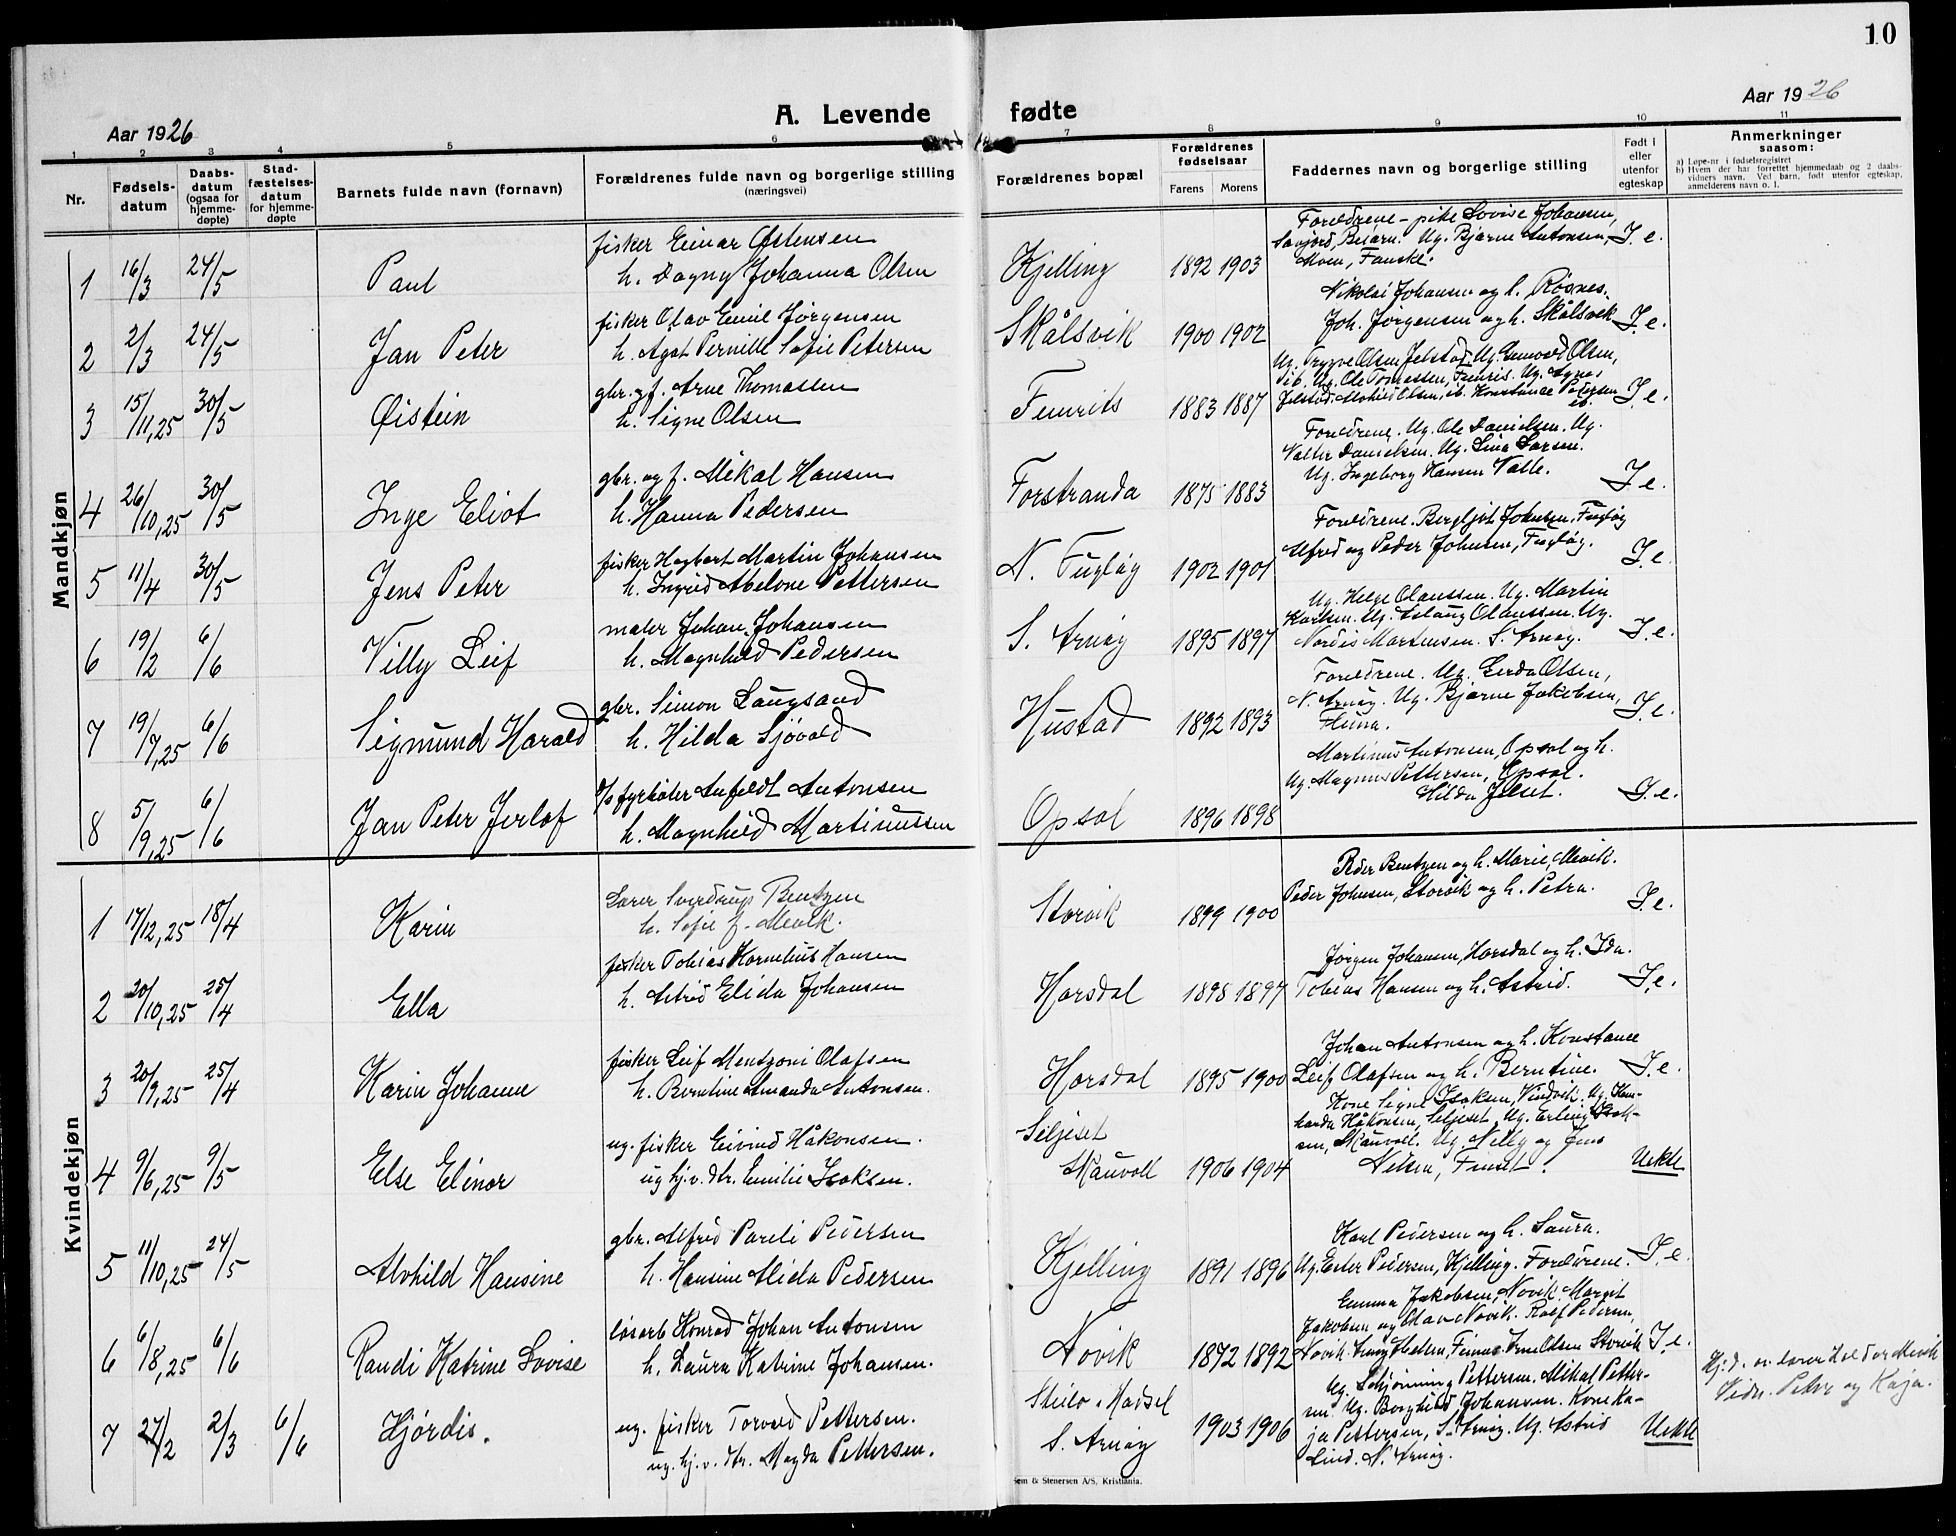 10
Aar 1926
A. Levende fødte
Aar 1926
1 2 3 4 5 6 7 8 9 10 11
Nr.
Fødsels-
datum
Daabs-
datum
(ogsaa for
hjemme-
døpte)
Stad-
fæstelses-
datum
for hjemme-
døpte
Barnets fulde navn (fornavn)
Forældrenes fulde navn og borgerlige stilling
(næringsvei)
Forældrenes bopæl
Forældrenes
fødselsaar
Farens Morens
Faddernes navn og borgerlige stilling
Født i
eller
utenfor
egteskap
Anmerkninger
saasom:
a) Løpe-nr i fødselsregistret
b) Hvem der har forrettet hjemmedaab og 2 daabs-
vidners navn. Ved barn, født utenfor egteskap,
anmelderens navn o. l.
Mandkjøn
1 16/3 24/5 Paul
fisker Einar Østensen
h. Dagny Johanna Olsen
Kjelling 1892 1903
Foreldrene - pike Lovise Johansen,
Savjord, Beiarn. Ug. Bjarne Antonsen,
Moen, Fauske.
I. e.
2 2/3 24/5 Jan Peter
fisker Olav Emil Jørgensen
h. Agot Pernille Sofie Petersen
Skålsvik 1900 1902
Nikolai Johansen og h. Røsnes.
Joh. Jørgensen og h. Skålsvik
I. e.
3 15/11,25 30/5 Øistein
gbr. og f. Arne Thomassen
h. Signe Olsen
Femrits 1883 1887
Ug. Trygve Olsen Jelstad. Ug. Olsen,
ib. Ug. Ole Tomassen, Femris. Ug. Agnes
Jelstad. Olsen, ib. Konstance Pedersen
ib.
I. e.
4 26/10,25 30/5 Inge Eliot
gbr. og f. Mikal Hansen
h. Hanna Pedersen
Forstranda 1875 1883
Foreldrene. Ug. Ole Danielsen. Ug.
Valter Danielsen. Ug. Lina Larsen.
Ug. Ingeborg Hansen Valle.
I. e.
5 11/4 30/5 Jens Peter
fisker Hagbart Martin Johansen
h. Ingrid Abelone Pettersen
N. Fugløy 1902 1901
Foreldrene. Bergljot Johnsen, Fugløy
Alfred og Peder Johnsen, Fugløy.
I. e.
6 19/2 6/6 Villy Leif
maler Johan Johansen
h. Magnhild Pedersen
S. Arnøy 1895 1897
Ug. Helge Olaussen. Ug. Martin
Karlsen. Ug. Aslaug Olaussen. Ug.
Nordis Mortensen. S. Arnøy.
I. e.
7 19/7,25 6/6 Sigmund Harald
gbr. Simon Laugsand
h. Hilda Sjøvold
Hustad 1892 1893
Foreldrene. Ug. Gerda Olsen,
N. Arnøy. Ug. Bjarne Jakobsen,
I. e.
8 5/9,25 6/6 Jan Peter Jerlof
fyrbøter Anfeldt Antonsen
h. Magnhild Martinussen
Opsal 1896 1898
Martinus Antonsen, Opsal og h.
Ug. Magnus Pettersen, Opsal.
Hilda Jelset.
I. e.
Kvindekjøn
1 17/12,25 18/4 Karin
Lærer Sverdrup Bentzen
h. Sofie f. Mevik.
Storvik 1899 1900
Peder Bentzen og h. Marie, Mevik.
Peder Johnsen, Storvik og h. Petra.
I. e.
2 20/10,25 25/4 Ella
fisker Tobias Kornelius Hansen
h. Astrid Elida Johansen
Horsdal 1898 1897
Jørgen Johansen, Horsdal og h. Ida.
Tobias Hansen og h. Astrid.
I. e.
3 20/9,25 25/4 Karin Johanne
fisker Leif Mentzoni Olafsen
h. Berntine Amanda Antonsen.
Horsdal 1895 1900
Johan Antonsen og h. Konstance
Leif Olafsen og h. Berntine.
I. e.
4 9/6,25 9/5 Else Elinor
ug. fisker Eivind Håkonsen.
ug hj. v. dtr. Emilie Isaksen.
Seljeset
Skauvoll 1906 1904
Kone Signe Isaksen, Vindvik. Ug.
Håkonsen, Seljeset. Ug. Erling Isak-
sen, Skauvoll. Ug. Nelly og Jens
Nilsen, Finset.
Uekte
5 11/10,25 24/5 Alvhild Hansine
gbr. Alfred Pareli Pedersen
h. Hansine Alida Pedersen
Kjelling 1891 1896
Karl Pedersen og h. Laura.
Ug. Ester Pedersen, Kjelling. Foreldrene.
I. e.
6 6/8,25 6/6 Randi Katrine Lovise
løsarb Konrad Johan Antonsen
h. Laura Katrine Johansen.
Novik 1872 1892
Emma Jakobsen, Novik. Margit
Jakobsen og Olav Novik. Rolf Pedersen,
Novik. Olsen Storvik
I. e.
7 27/2 2/3 6/6 Hjørdis.
ug. fisker Torvald Pettersen.
ug. hj. v. dtr. Magda Pettersen.
Steilo i Hadsel
S. Arnøy 1903 1906
Ug. Schjønning Pettersen. Mikal Petter-
sen. Ug. Borghild Johansen. Kone Ka-
ja Pettersen, S. Arnøy. Ug. Astrid
Lind. N. Arnøy.
Uekte
Hj. d. av lærer Mevik
Vidn. Petra og Kaja.
Sem & Stenersen A/S, Kristiania.